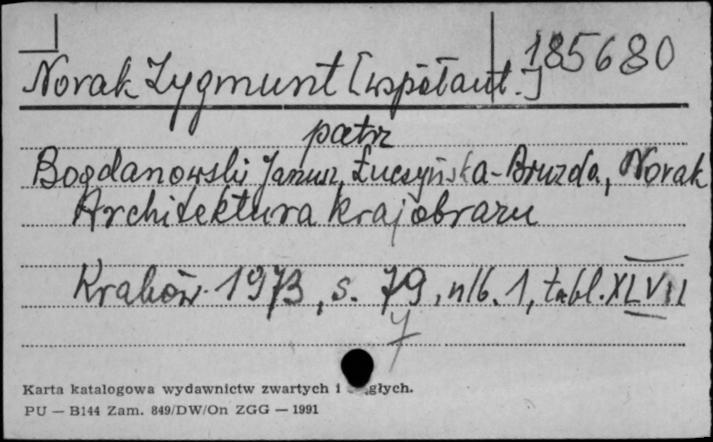 185680
Novak Zygmunt [współaut.]
patrz
Bogdanowski Janusz, Łuczyńska-Bruzda, Novak
Architektura krajobrazu
Kraków 1973, s. 79, nlb. 1, tabl. XLVII
7
Karta katalogowa wydawnictw zwartych i głych.
PU — B144 Zam. 849/DW/On ZGG — 1991